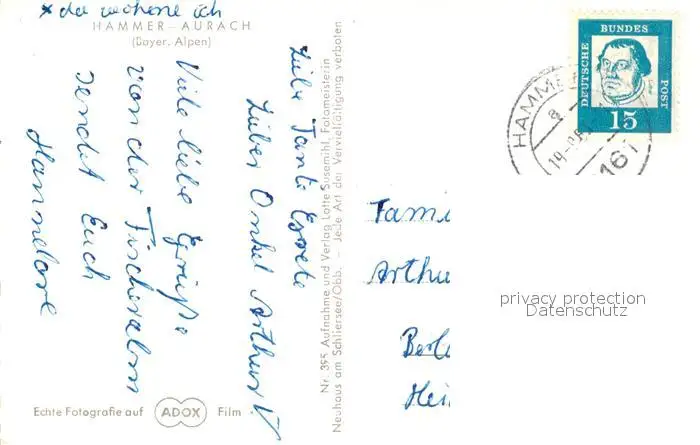 * da wohne ich
HAMMER-AURACH
(Bayer. Alpen)
Liebe Tante
Lieber Onkel Arthur!
Viele liebe Grüße
von der Fischeralm
sendet Euch
Hannelore
Nr. 395 Aufnahme und Verlag Lotte Susemihl, Fotomeisterin
Neuhaus am Schliersee/Obb. — Jede Art der Vervielfältigung verboten
Echte Fotografie auf ADOX Film
DEUTSCHE BUNDES POST
15
HAMME
Fami
Arthu
Berl
Hei
privacy protection
Datenschutz